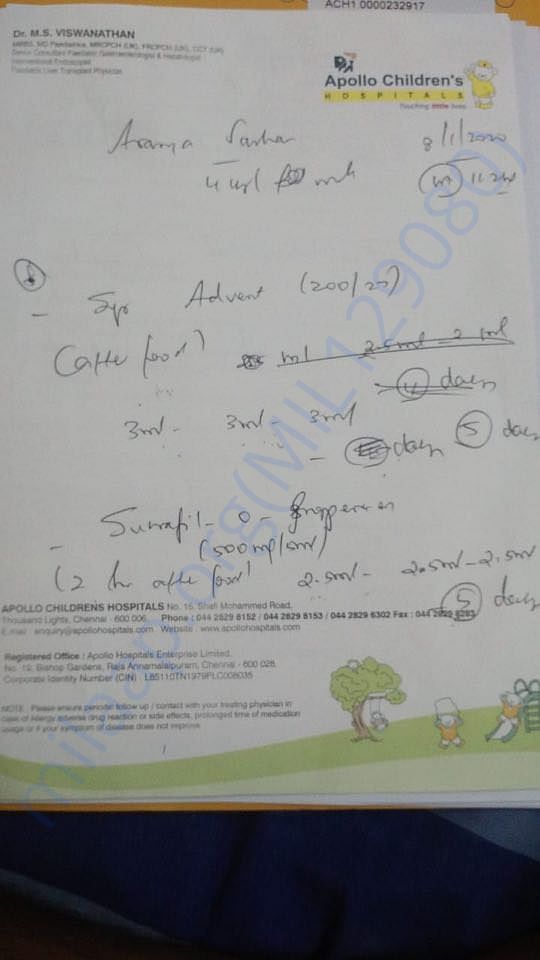 ACH1.0000232917
Dr. M.S. VISWANATHAN
MBBS, MD Paediatrics, MRCPCH (UK), FRCPCH (UK), CCT (UK)
Senior Consultant Paediatric Gastroenterologist & Hepatologist
Interventional Endoscopist
Paediatric Liver Transplant Physician
Apollo Children's
HOSPITALS
Touching little lives
8/1/2020
Syp Advent (200/28)
(after food)
ml 2.5ml - 2 ml
days
3ml - 3ml - 3ml
- days 5 days
- Sucrafil - O -
(500mg/5ml)
(2 hr after food) 2.5ml - 2.5ml - 2.5ml
5 days
APOLLO CHILDRENS HOSPITALS No. 15, Shafi Mohammed Road,
Thousand Lights, Chennai - 600 006. Phone : 044 2829 8152 / 044 2829 8153 / 044 2829 6302 Fax : 044 2829
E.mail : enquiry@apollohospitals.com Website : www.apollohospitals.com
Registered Office : Apollo Hospitals Enterprise Limited,
No. 19, Bishop Gardens, Raja Annamalaipuram, Chennai - 600 028.
Corporate Identity Number (CIN) : L85110TN1979PLC008035
NOTE : Please ensure periodic follow up / contact with your treating physician in
case of Allergy adverse drug reaction or side effects, prolonged time of medication
usage or if your symptom of disease does not improve.
milaap.org(MIL129080)